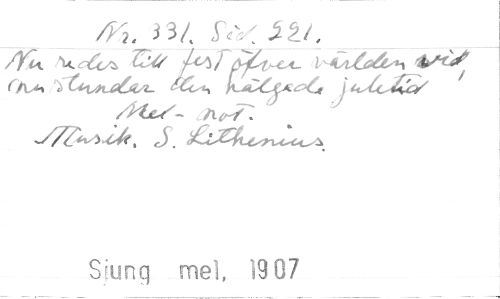 Nr. 331. Sid. 221.
Nu redes till fest öfver världen vid,
nu stundar den hälgade juletid
Mel-not.
Musik. S. Lithenius.
Sjung mel, 1907